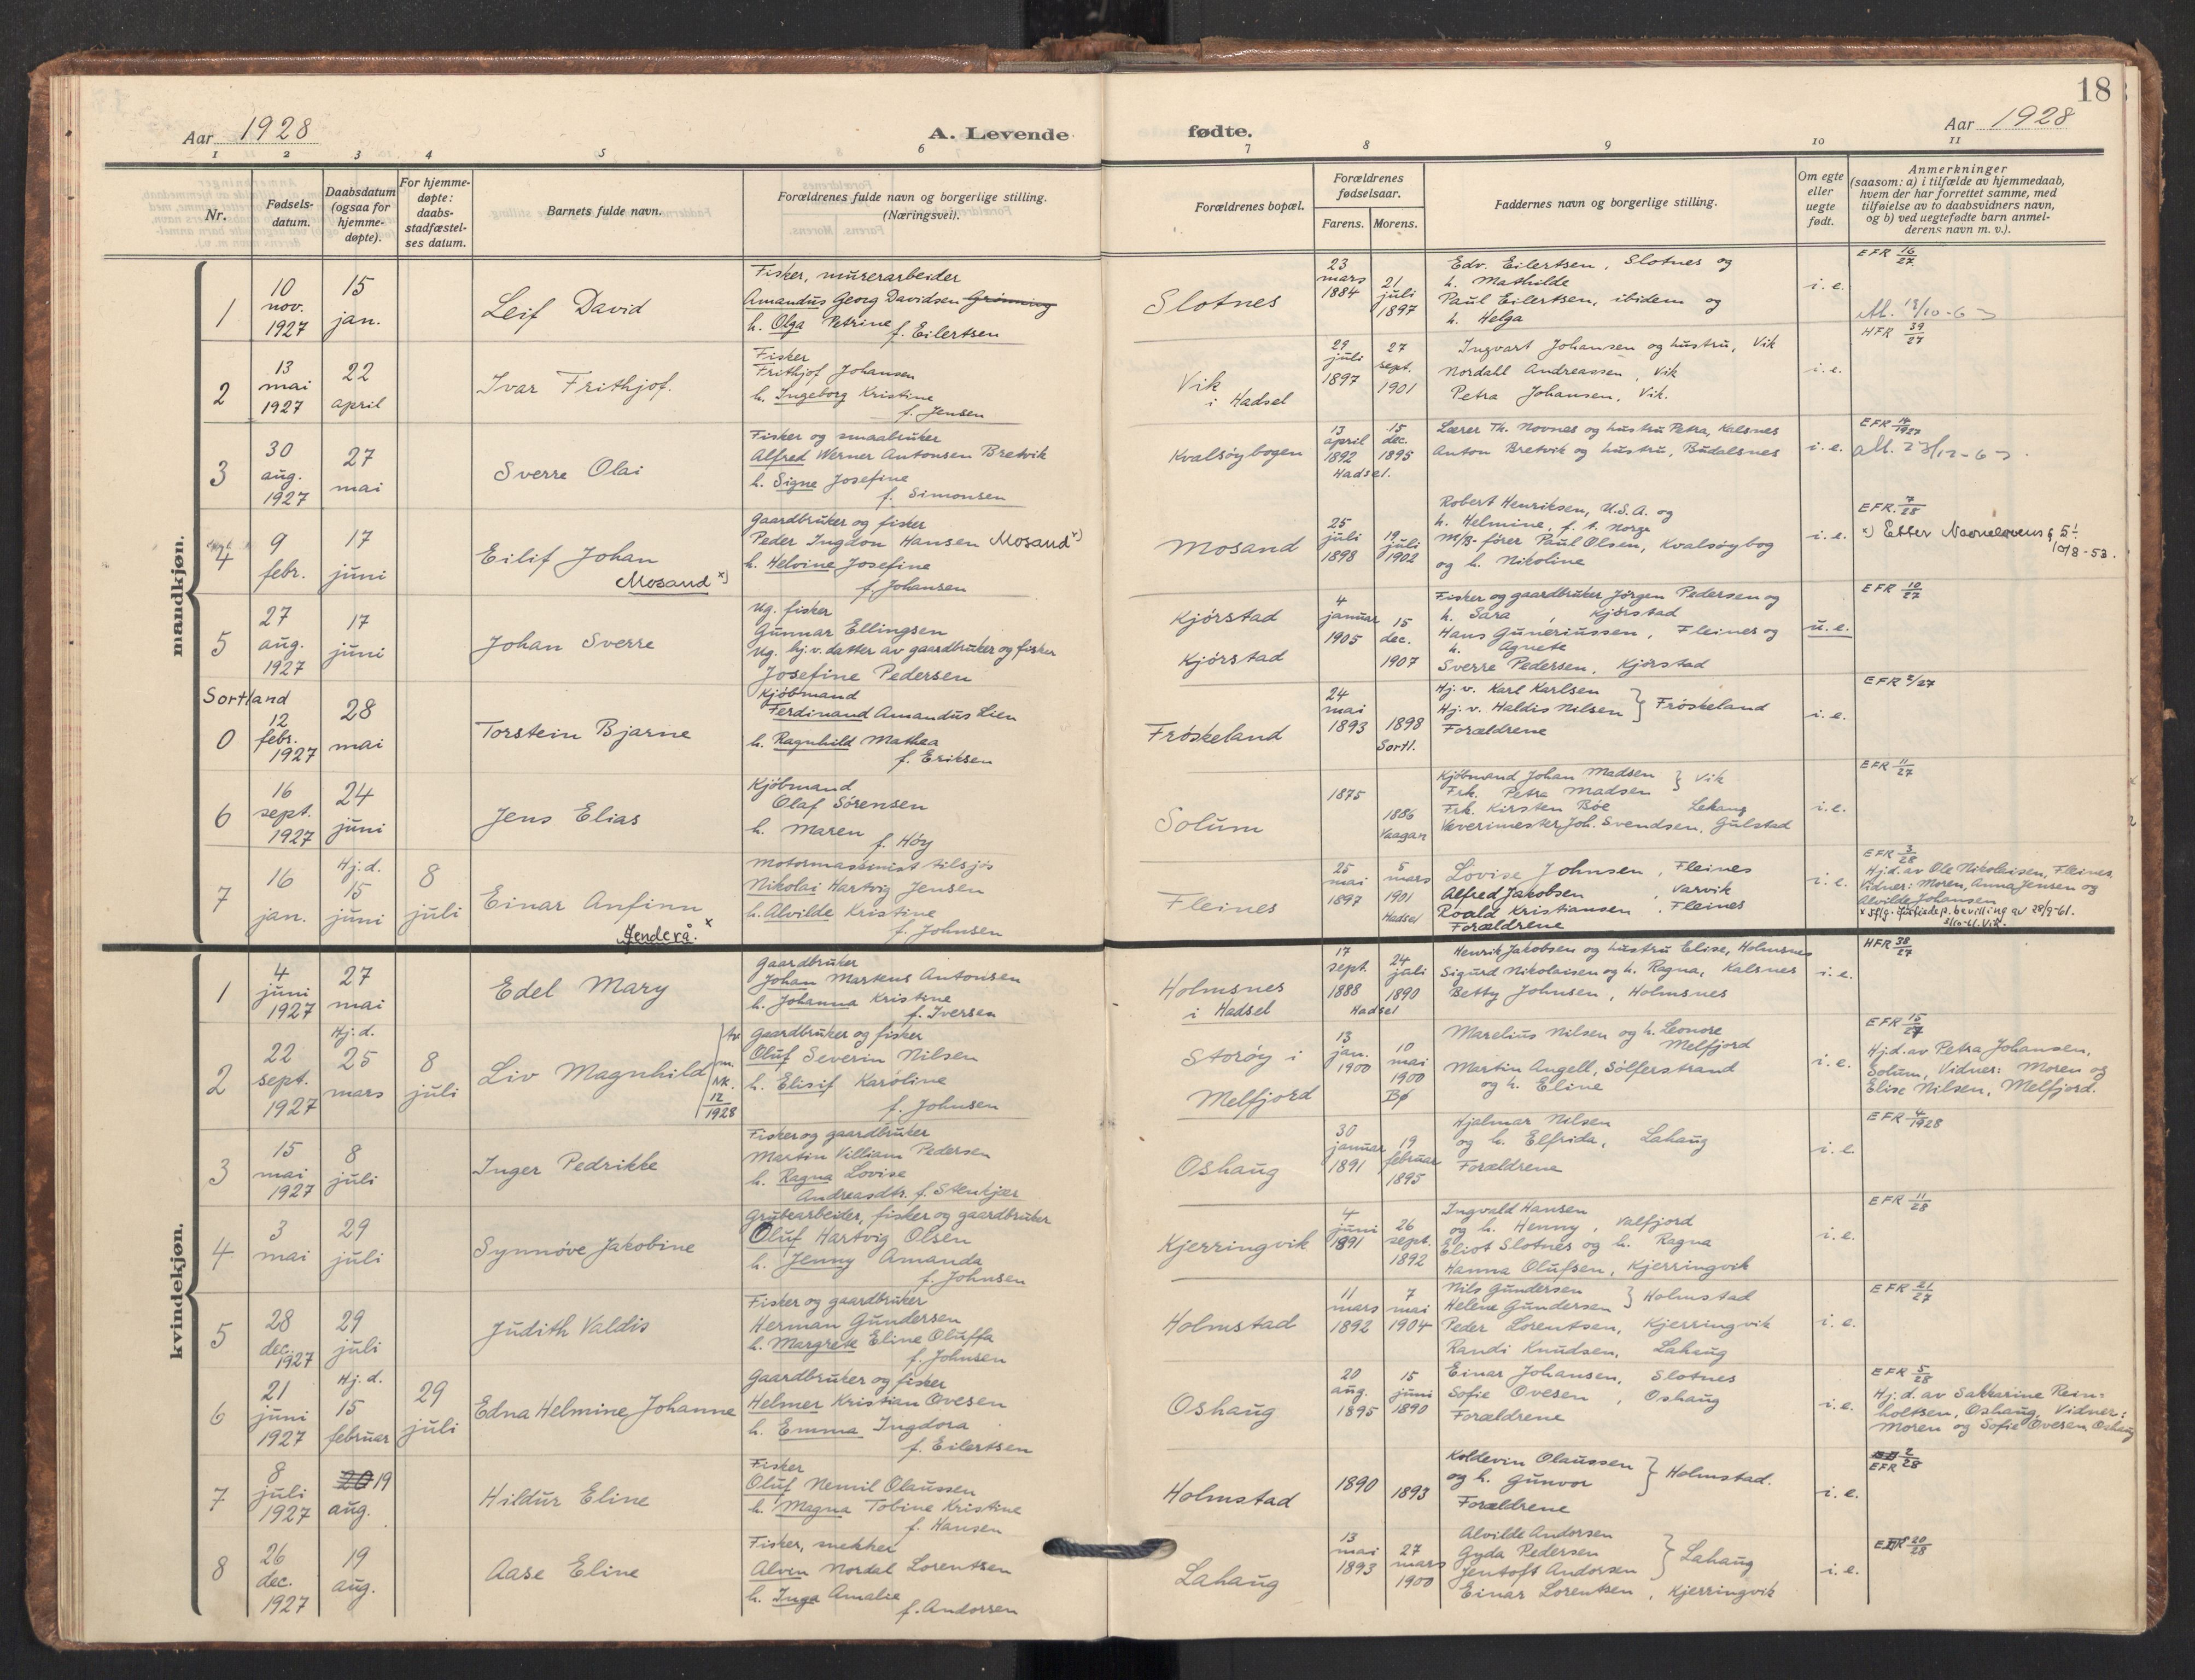 18
Aar 1928
A. Levende
fødte.
Aar 1928
1 2 3 4 5 6
7 8 9 10 11
Nr.
Fødsels-
datum.
Daabsdatum
(ogsaa for
hjemme-
døpte).
For hjemme-
døpte:
daabs-
stadfæstel-
ses datum.
Barnets fulde navn.
Forældrenes fulde navn og borgerlige stilling.
(Næringsvei).
Forældrenes bopæl.
Forældrenes
fødselsaar.
Farens. Morens.
Faddernes navn og borgerlige stilling.
Om egte
eller
uegte
født.
Anmerkninger
(saasom: a) i tilfælde av hjemmedaab,
hvem der har forrettet samme, med
tilføielse av to daabsvidners navn,
og b) ved uegtefødte barn anmel-
derens navn m. v.).
mandkjøn.
1
10
nov.
1927
15
jan.
Leif David
Fisker, murerarbeider
Amandus Georg Davidsen Grønning
h. Olga Petrine
f. Eilertsen
Slotnes
23
mars
1884
21
juli
1897
Edv. Eilertsen, Slotnes og
h. Mathilde
Paul Eilertsen, ibidem og
h. Helga
i. e.
EFR 16/27
2
13
mai
1927
22
april
Ivar Frithjof.
Fisker
Frithjof Johansen
h. Ingeborg Kristine
f. Jensen
Vik
i Hadsel
29
juli
1897
27
sept.
1901
Ingvart Johansen og hustru, Vik
Nordall Andreassen, Vik
Petra Johansen, Vik.
i. e.
HFR 39/27
3
30
aug.
1927
27
mai
Sverre Olai
Fisker og smaabruker
Alfred Werner Antonsen Bretvik
h. Signe Josefine
f. Simonsen
Kvalsøybogen
13
april
1892
15
dec.
1895
Hadsel.
Lærer Th. Novnes og hustru Petra, Kalsnes
Anton Bretvik og hustru, Budalsnes
i. e.
EFR 14/1927
4
9
febr.
17
juni
Eilif Johan
Mosand x)
Gaardbruker og fisker
Peder Ingdon Hansen Mosand x)
h. Helvine Josefine
f. Johansen
Mosand
25
juli
1898
19
juli
1902
Robert Henriksen, U.S.A. og
h. Helmine, f. t. Norge
M/B-fører Paul Olsen, Kvalsøybog
og h. Nikoline
i. e.
EFR. 7/28
x) Etter Navnelovens § 5.
10/8-53.
5
27
aug.
1927
17
juni
Johan Sverre
Ug. fisker
Gunnar Ellingsen
Ug. hj. v. datter av gaardbruker og fisker
Josefine Pedersen
Kjørstad
Kjørstad
4
januar
1905
15
dec.
1907
Fisker og gaardbruker Jørgen Pedersen og
h. Sara, Kjørstad
Hans Guneriussen, Fleines og
h. Agnete
Sverre Pedersen, Kjørstad
u. e.
EFR 10/27
Sortland
0
12
febr.
1927
28
mai
Torstein Bjarne
Kjøbmand
Ferdinand Amandus Lien
h. Ragnhild Mathea
f. Eriksen
Frøskeland
24
mai
1893
1898
Sortl.
Hj. v. Karl Karlsen
Hj. v. Haldis Nilsen } Frøskeland
Forældrene
i. e.
EFR 2/27
6
16
sept.
1927
24
juni
Jens Elias
Kjøbmand
Olaf Sørensen
h. Maren
f. Høy
Solum
1875
1886
Vaagan
Kjøbmand Johan Madsen } Vik
Frk. Petra Madsen
Frk. Kirsten Bøe Lekang
Væverimester Joh. Svendsen, Gulstad
i. e.
EFR 11/27
7
16
jan.
Hj. d.
15
juni
8
juli
Einar Anfinn
Jenderå. x
Motormaskinist tilsjøs
Nikolai Hartvig Jensen
h. Alvilde Kristine
f. Johnsen
Fleines
25
mai
1897
5
mars
1901
Hadsel
Lovise Johnsen, Fleines
Alfred Jakobsen, Varvik
Roald Kristiansen, Fleines
Forældrene
i. e.
EFR 3/28
Hj.d. av Ole Nikolaisen, Fleines
Vidner: Moren, Anna Jensen og
Alvilde Johansen
x Iflg. Justisdep. bevilling av 28/9-61.
kvindekjøn.
1
4
juni
1927
27
mai
Edel Mary
Gaardbruker
Johan Martens Antonsen
h. Johanna Kristine
f. Iversen
Holmsnes
i Hadsel
17
sept.
1888
24
juli
1890
Hadsel
Henrik Jakobsen og hustru Elise, Holmsnes
Sigurd Nikolaisen og h. Ragna, Kalsnes
Betty Johnsen, Holmsnes
i. e.
HFR 38/27
2
22
sept.
1927
Hj. d.
25
mars
8
juli
Liv Magnhild
12/1928
Gaardbruker og fisker
Oluf Severin Nilsen
h. Elisif Karoline
f. Johnsen
Storøy i
Melfjord
13
jan.
1900
10
mai
1900
Bø
Marelius Nilsen og h. Leonore
Melfjord
Martin Angell, Sølferstrand
og h. Eline
i. e.
EFR 15/27
Hj.d. av Petra Johansen,
Solum, Vidner: Moren og
Elise Nilsen, Melfjord.
3
15
mai
1927
8
juli
Inger Pedrikke
Fisker og gaardbruker
Martin Villiam Pedersen
h. Ragna Lovise
Andreasdtr. f. Stenkjær
Oshaug
30
januar
1891
19
februar
1895
Hjalmar Nilsen
og h. Elfrida, Lahaug
Forældrene
i. e.
EFR 4/1928
4
3
mai
29
juli
Synnøve Jakobine
Grubearbeider, fisker og gaardbruker
Oluf Hartvig Olsen
h. Jenny Amanda
f. Johnsen
Kjerringvik
4
juni
1891
26
sept.
1892
Ingvald Hansen
og h. Henny, Valfjord
Eliot Slotnes og h. Ragna
Hanna Olufsen, Kjerringvik
i. e.
EFR 11/28
5
28
dec.
1927
29
juli
Judith Valdis
Fisker og gaardbruker
Herman Gundersen
h. Margrete Eline Oluffa
f. Johnsen
Holmstad
11
mars
1892
7
mai
1904
Nils Gundersen
Helene Gundersen } Holmstad
Peder Lorentsen, Kjerringvik
Randi Knudsen, Lahaug
i. e.
EFR 21/27
6
21
juni
1927
Hj. d.
15
februar
29
juli
Edna Helmine Johanne
Gaardbruker og fisker
Helmer Kristian Ovesen
h. Emma Ingdora
f. Eilertsen
Oshaug
20
aug.
1895
15
juni
1890
Einar Johansen, Slotnes
Sofie Ovesen, Oshaug
Forældrene
i. e.
EFR 5/28
Hj. d. av Sakkarine Rein=
holtsen, Oshaug, Vidner:
Moren og Sofie Ovesen Oshaug
7
8
juli
1927
20 19
aug.
Hildur Eline
Fisker
Oluf Nemil Olaussen
h. Magna Tobine Kristine
f. Hansen
Holmstad
1890
1893
Koldevin Olaussen
og h. Gunvor } Holmstad.
Forældrene
i. e.
EFR 2/28
8
26
dec.
1927
19
aug.
Aase Eline
Fisker, snekker
Alven Nordal Lorentsen
h. Inga Amalie
f. Andorsen
Lahaug
13
mai
1893
27
mars
1900
Alvilde Andorsen
Gyda Pedersen
Jentoft Andorsen } Lahaug
Einar Lorentsen, Kjerringvik
i. e.
EFR 20/28